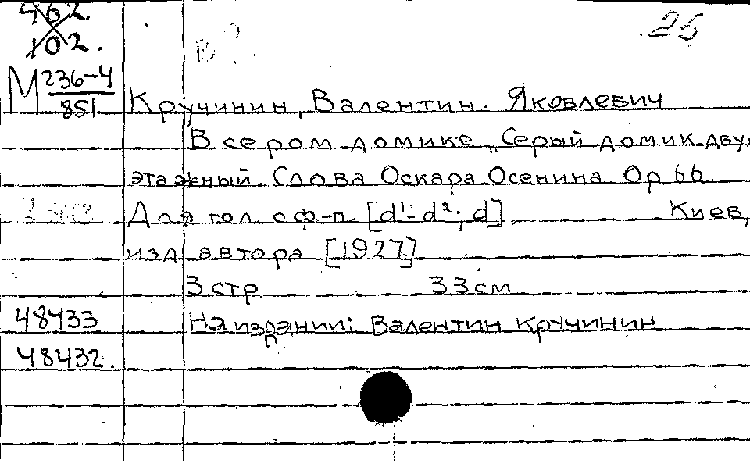 462.
102.
26
М 236-4
851
Кручинин, Валентин. Яковлевич
В сером домике „Серый домик дву,
этажный. Слова Оскара Осенина Ор 66
Для гол с ф-п [d¹-d²; d] Киев,
изд автора [1927]
3 стр 33 см
48433 На издании: Валентин Кручинин
48432.